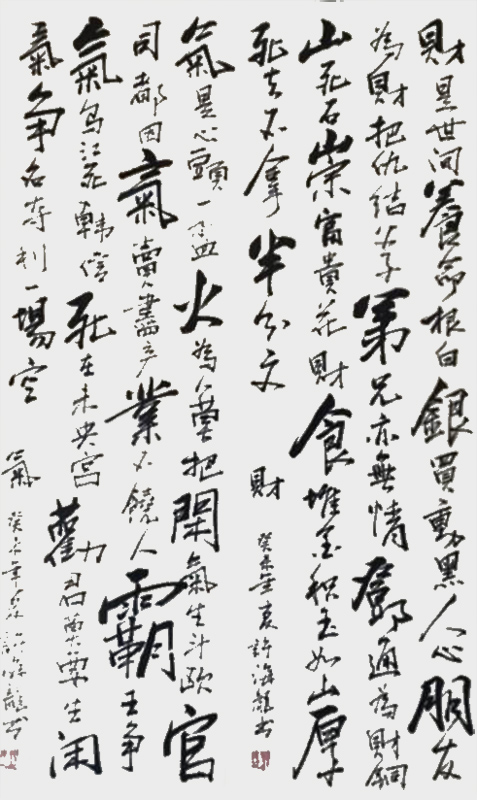 財是世间養命根白銀買動黑人心朋友
為財把仇结父子第兄亦無情鄧通為財铜
山死石崇富貴花財食堆金积玉如山厚
死去不拿半分文
財
癸未許海龍书
氣是心頭一盆火為人莫把閑氣生斗欧官
司都因氣賣盡产業不饒人霸王争
氣乌江死韓信死在未央宫勸君莫要生闲
氣争名夺利一場空
氣
癸未年許海龍书